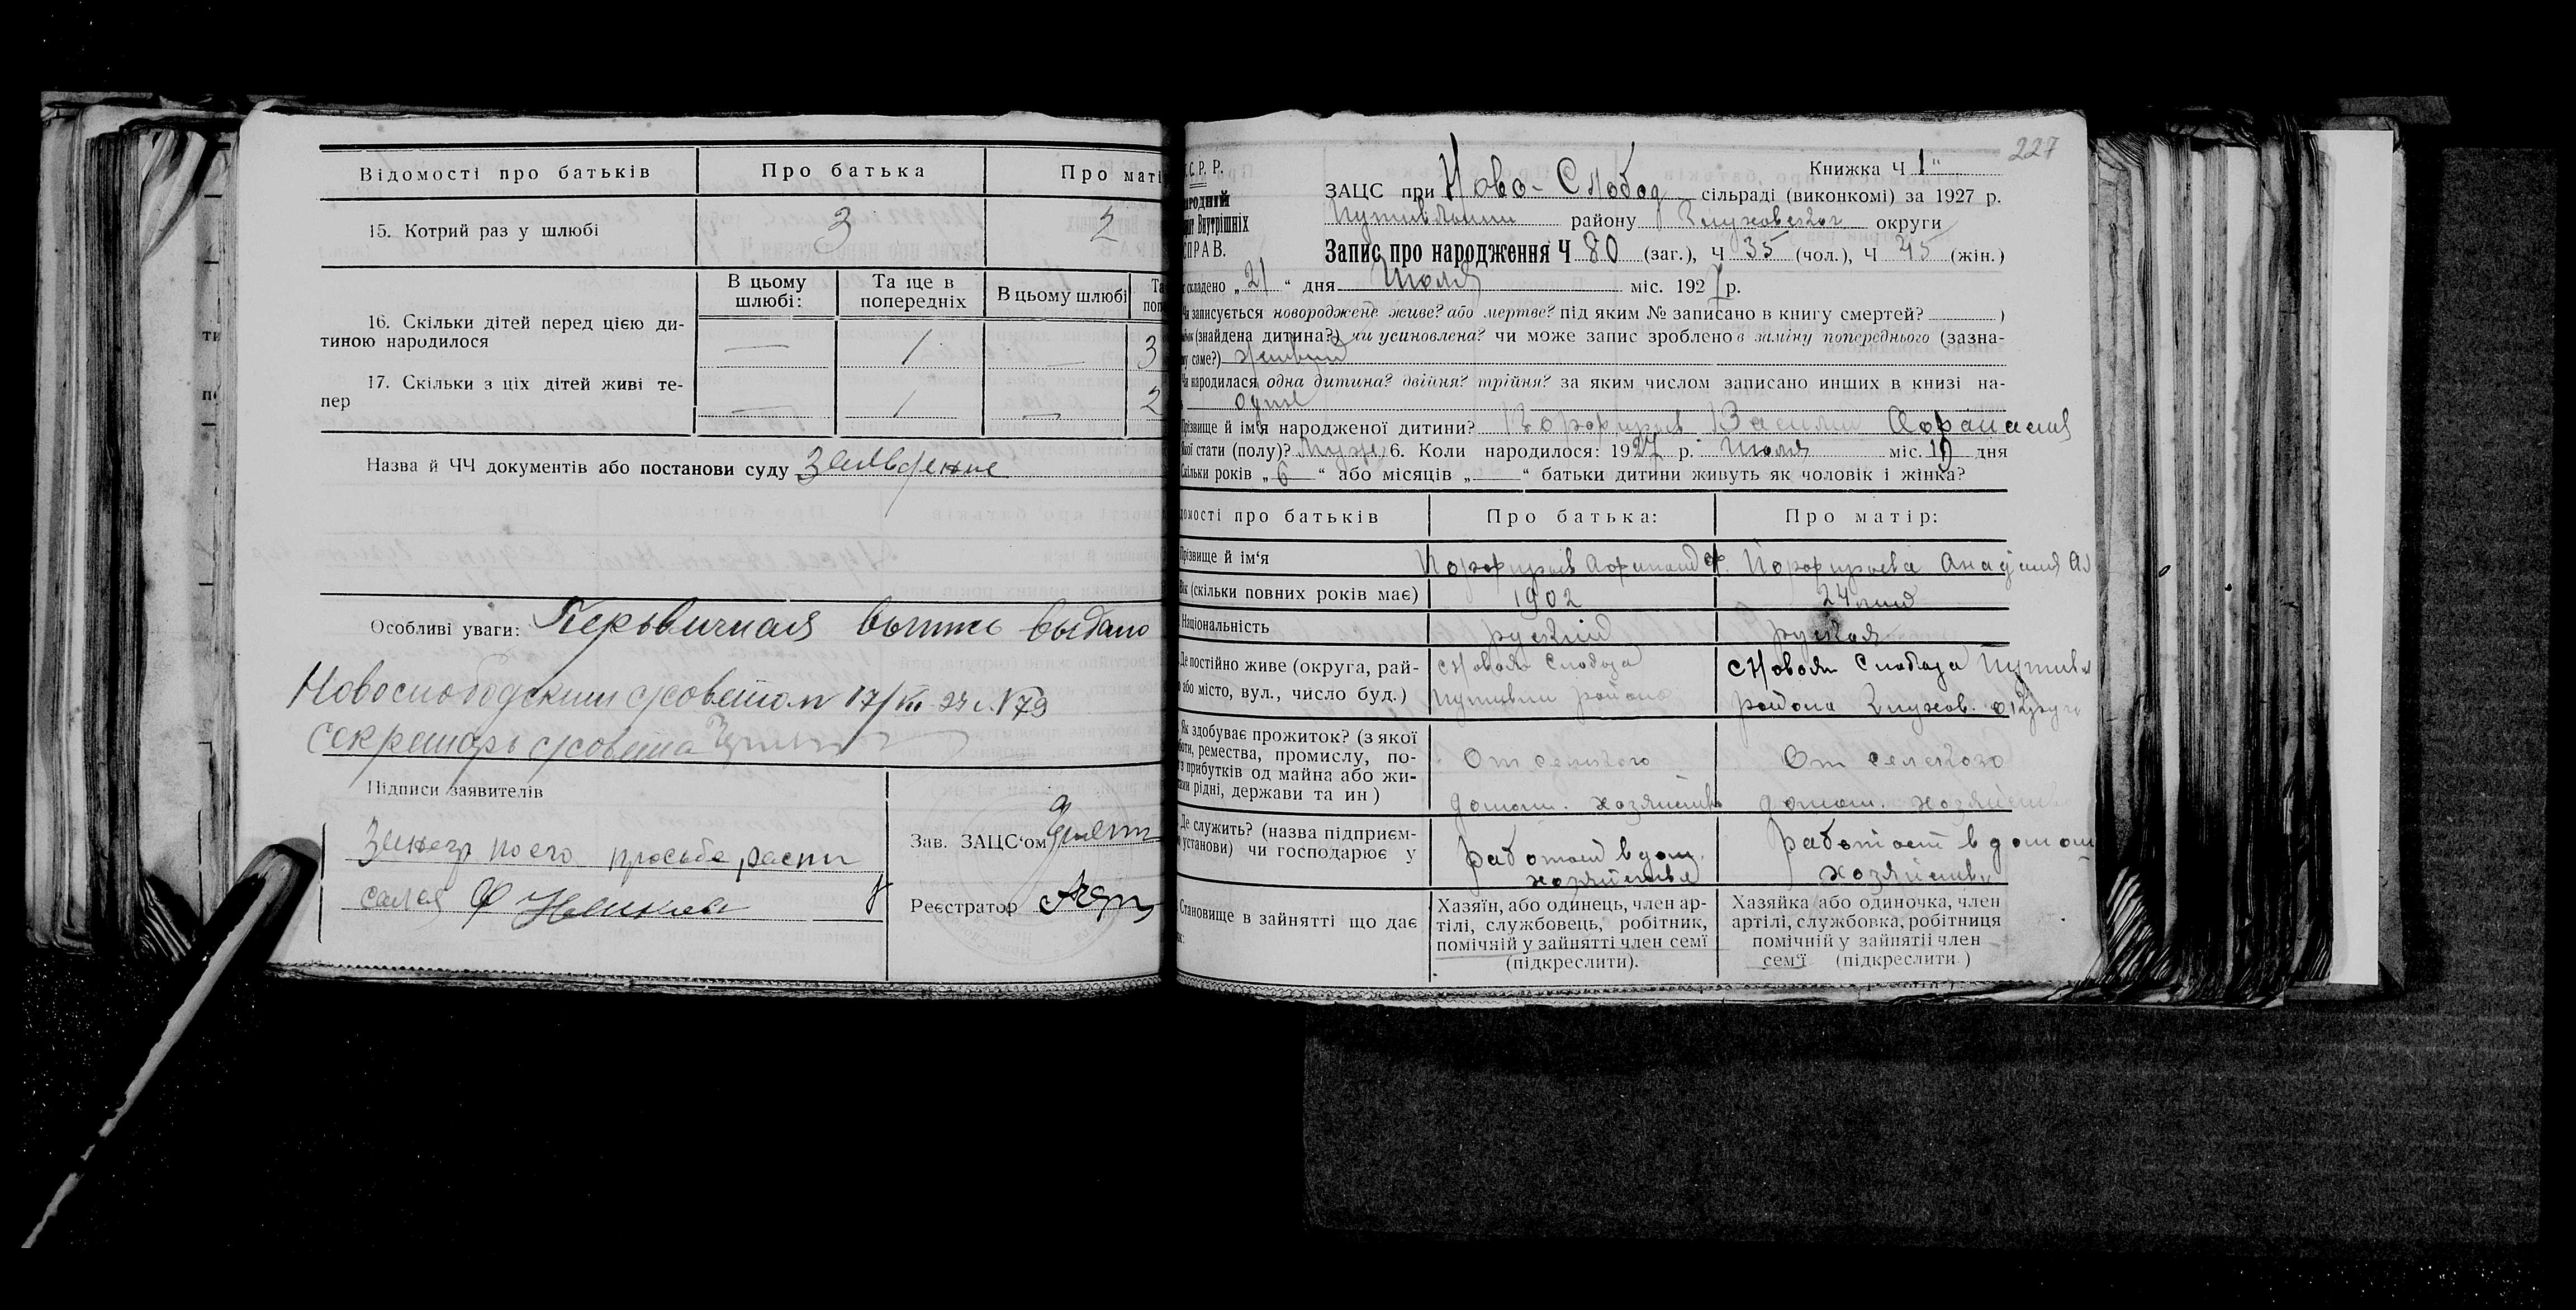 Відомості про батьків
Про батька
Про маті
15. Котрий раз у шлюбі
3
2
В цьому шлюбі:
Та ще в попередніх
В цьому шлюбі
Та
поп
16. Скільки дітей перед цією ди-
тиною народилося
—
1
—
3
17. Скільки з ціх дітей живі те-
пер
—
1
—
2
Назва й ЧЧ документів або постанови суду
Особливі уваги: Первичная выпись выдано
Новослободским с/советом 17/VIII-27 г. №79
секретарь с/совета
Підписи заявителів
по его просьбе распи
сался
Зав. ЗАЦС‘ом
Реєстратор
227
С. Р. Р.
Книжка Ч 1
ЗАЦС при Ново-Слобод сільраді (виконкомі) за 1927 р.
Внутрішніх
району Глуховской округи
СПРАВ.
Запис про народження Ч 80 (заг.), Ч 35 (чол.), Ч 45 (жін.)
складено „21“ дня Июля міс. 1927 р.
Чи записується новороджене живе? або мертве? під яким № записано в книгу смертей? )
(знайдена дитина?) чи усиновлена? чи може запис зроблено в заміну попереднього (зазна-
у саме?) живый
Чи народилася одна дитина? двійня? трійня? за яким числом записано инших в книзі на-
одне
Прізвище й ім‘я народженої дитини? Порфирьев Василий Афанасия
Якої стати (полу)? Муж. 6. Коли народилося: 1927 р. Июля міс. 19 дня
Скільки років „6“ або місяців „—“ батьки дитини живуть як чоловік і жінка?
домості про батьків
Про батька:
Про матір:
Прізвище й ім‘я
Порфирьев
Порфирьева
Вік (скільки повних років має)
1902
24
Національність
руский
руская
Де постійно живе (округа, рай-
або місто, вул., число буд.)
с Новая Слобода
Путивл района
с Новая Слобода Путивл
района Глухов. округи
Як здобуває прожиток? (з якої
боти, ремества, промислу, по-
прибутків од майна або жи-
рідні, держави та ин)
От сельского
домаш. хозяйства
От селского
домаш. хозяйств
Де служить? (назва підприєм-
установи) чи господарює у
работает в дом.
хозяйстве
работает в домаш
хозяйстви
Становище в зайнятті що дає
Хазяїн, або одинець, член ар-
тілі, службовець, робітник,
помічній у зайнятті член семї
(підкреслити).
Хазяйка або одиночка, член
артілі, службовка, робітниця
помічній у зайнятії член
сем‘ї (підкреслити)